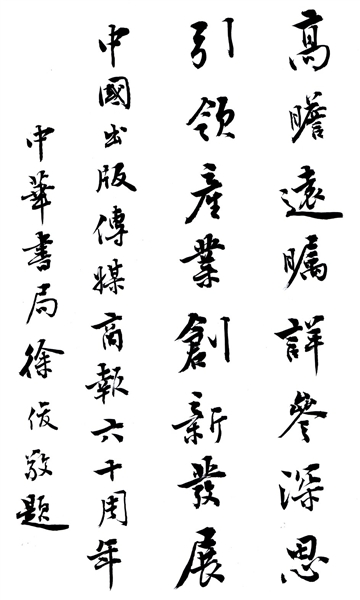 高瞻遠矚詳參深思
引領産業創新發展
中國出版傳媒商報六十周年
中華書局徐俊敬題